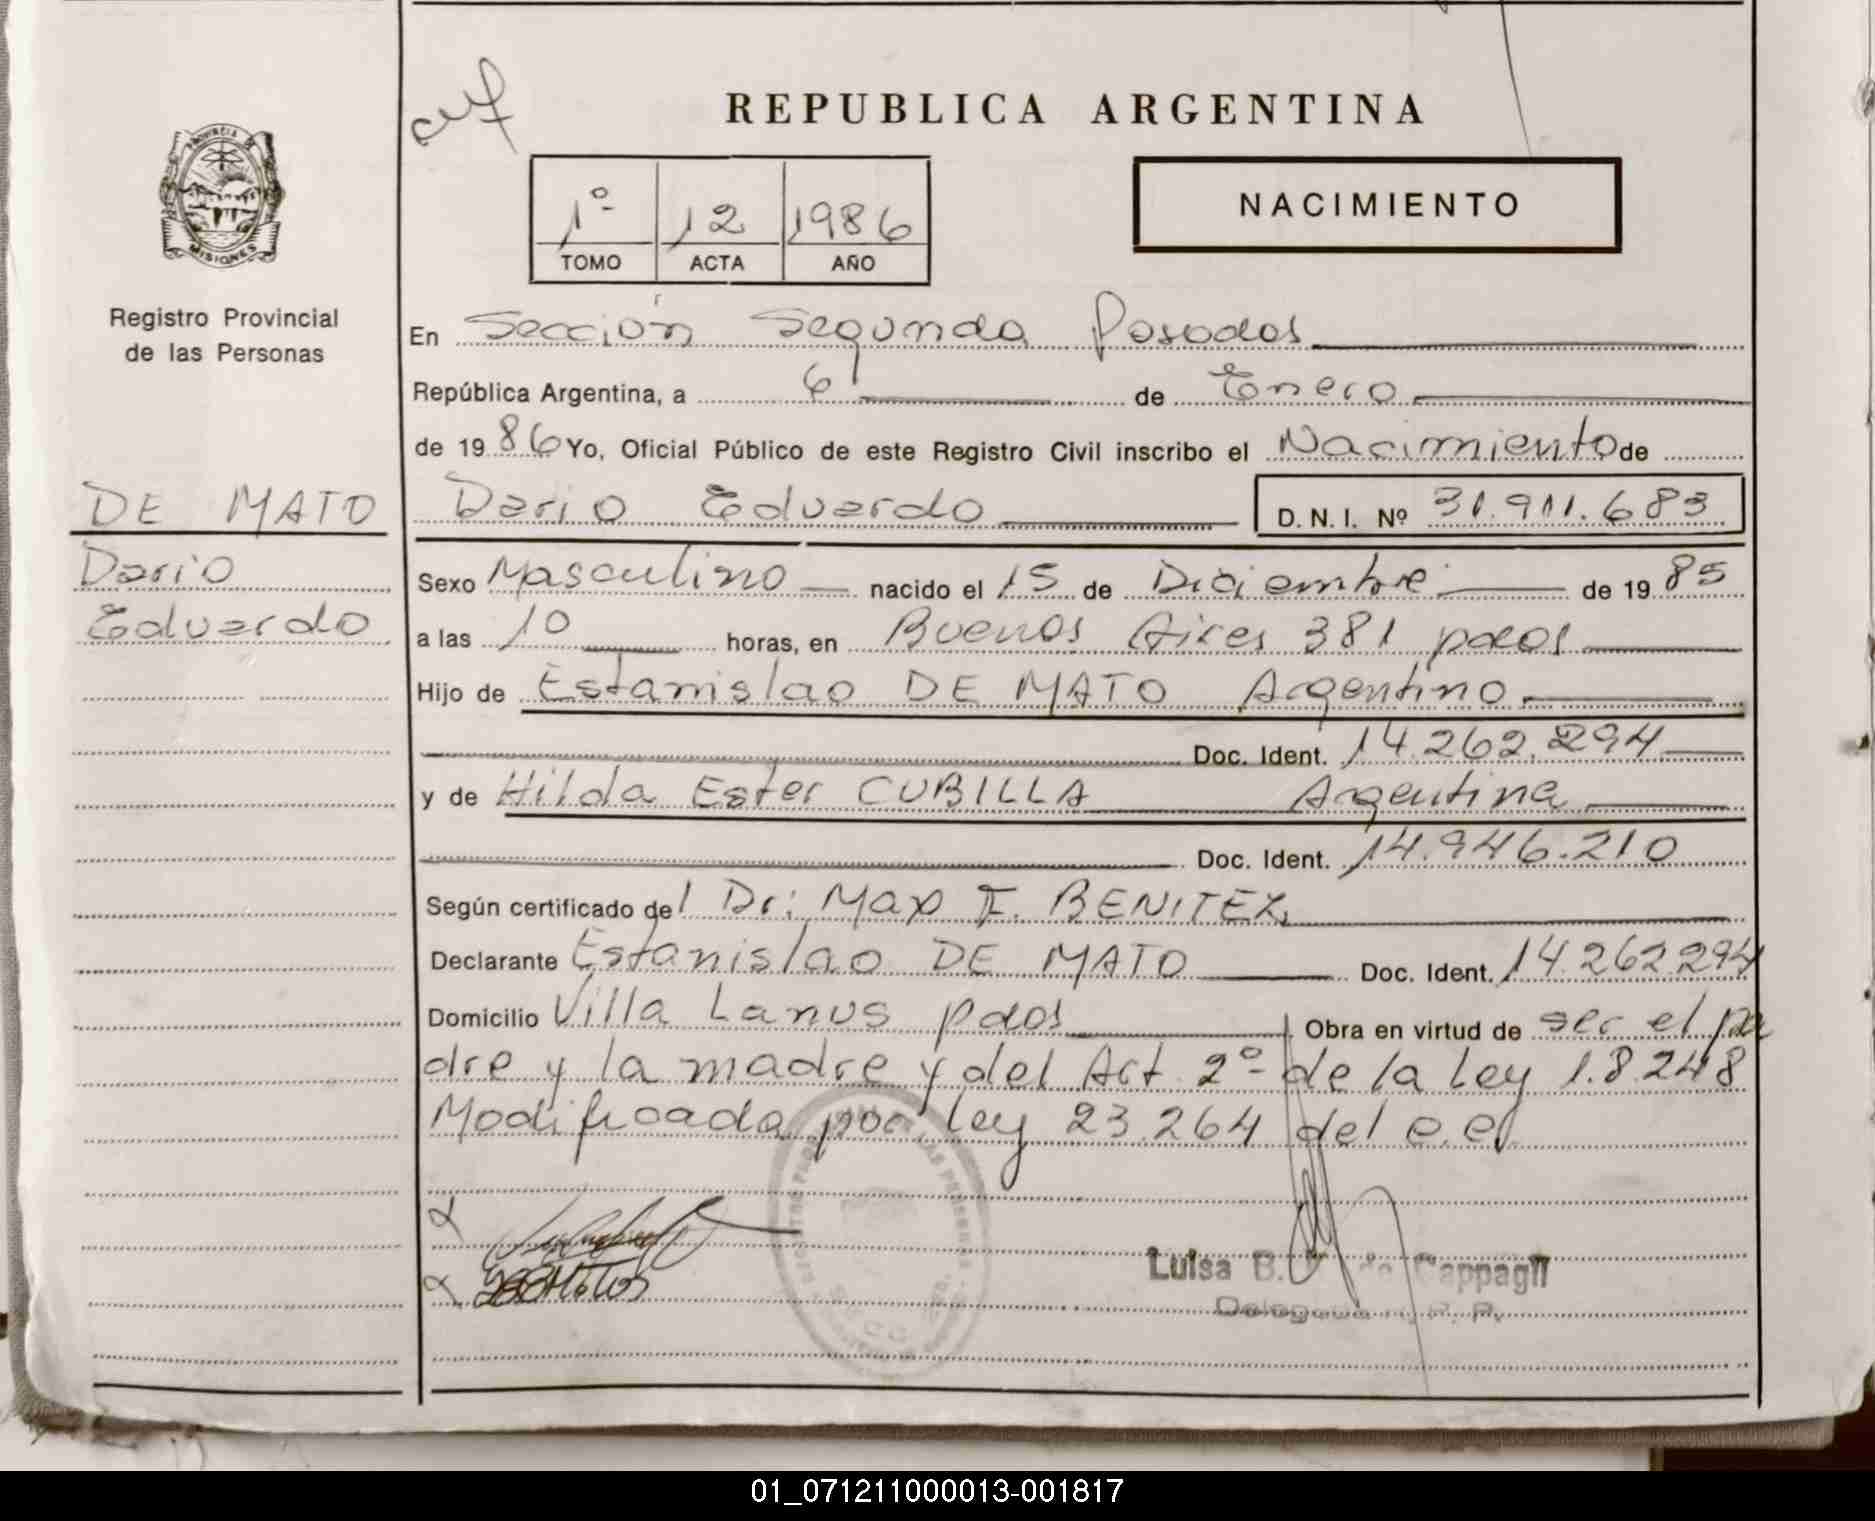 REPUBLICA ARGENTINA
PROVINCIA DE
MISIONES
1º 12 1986
TOMO ACTA AÑO
NACIMIENTO
Registro Provincial
de las Personas
En Sección Segunda Posadas
República Argentina, a 6 de Enero
de 1986 Yo, Oficial Público de este Registro Civil inscribo el Nacimiento de
DE MATO
Dario Eduardo D.N.I. Nº 31.911.683
Dario
Eduardo
Sexo Masculino nacido el 15 de Diciembre de 1985
a las 10 horas, en Buenos Aires 381 pdas
Hijo de Estanislao DE MATO Argentino
Doc. Ident. 14.262.294
y de Hilda Ester CUBILLA Argentina
Doc. Ident. 14.946.210
Según certificado del Dr: Max F. BENITEZ
Declarante Estanislao DE MATO Doc. Ident. 14.262.294
Domicilio Villa Lanus pdas Obra en virtud de ser el pa
dre y la madre y del Art 2º de la Ley 18.248
Modificada por ley 23.264 del
Luisa B. de Cappagli
Delegada R. P. P.
01_071211000013-001817